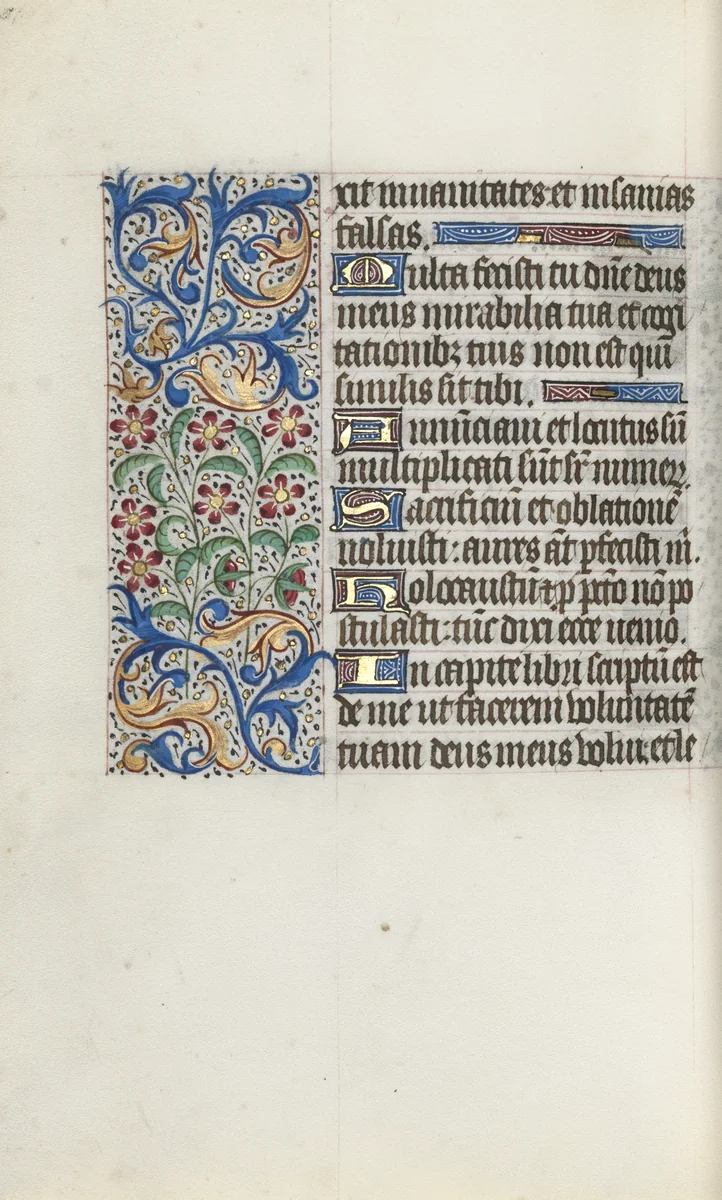 xit in uanitates et insanias
falsas.
Multa fecisti tu dn̄e deus
meus mirabilia tua et cogi
tationibꝫ tuis non est qui
similis sit tibi.
Annūciaui et locutus sū
multiplicati sūt sr̄ numeꝝ.
Sacrificiū et oblationē
noluisti: aures āt ꝑfecisti m̄.
Holocaustū ⁊ ꝓ pctō nō po
stulasti: tūc dixi ecce uenio.
In capite libri scriptū est
de me ut facerem volūtatē
tuam deus meus volui: et le